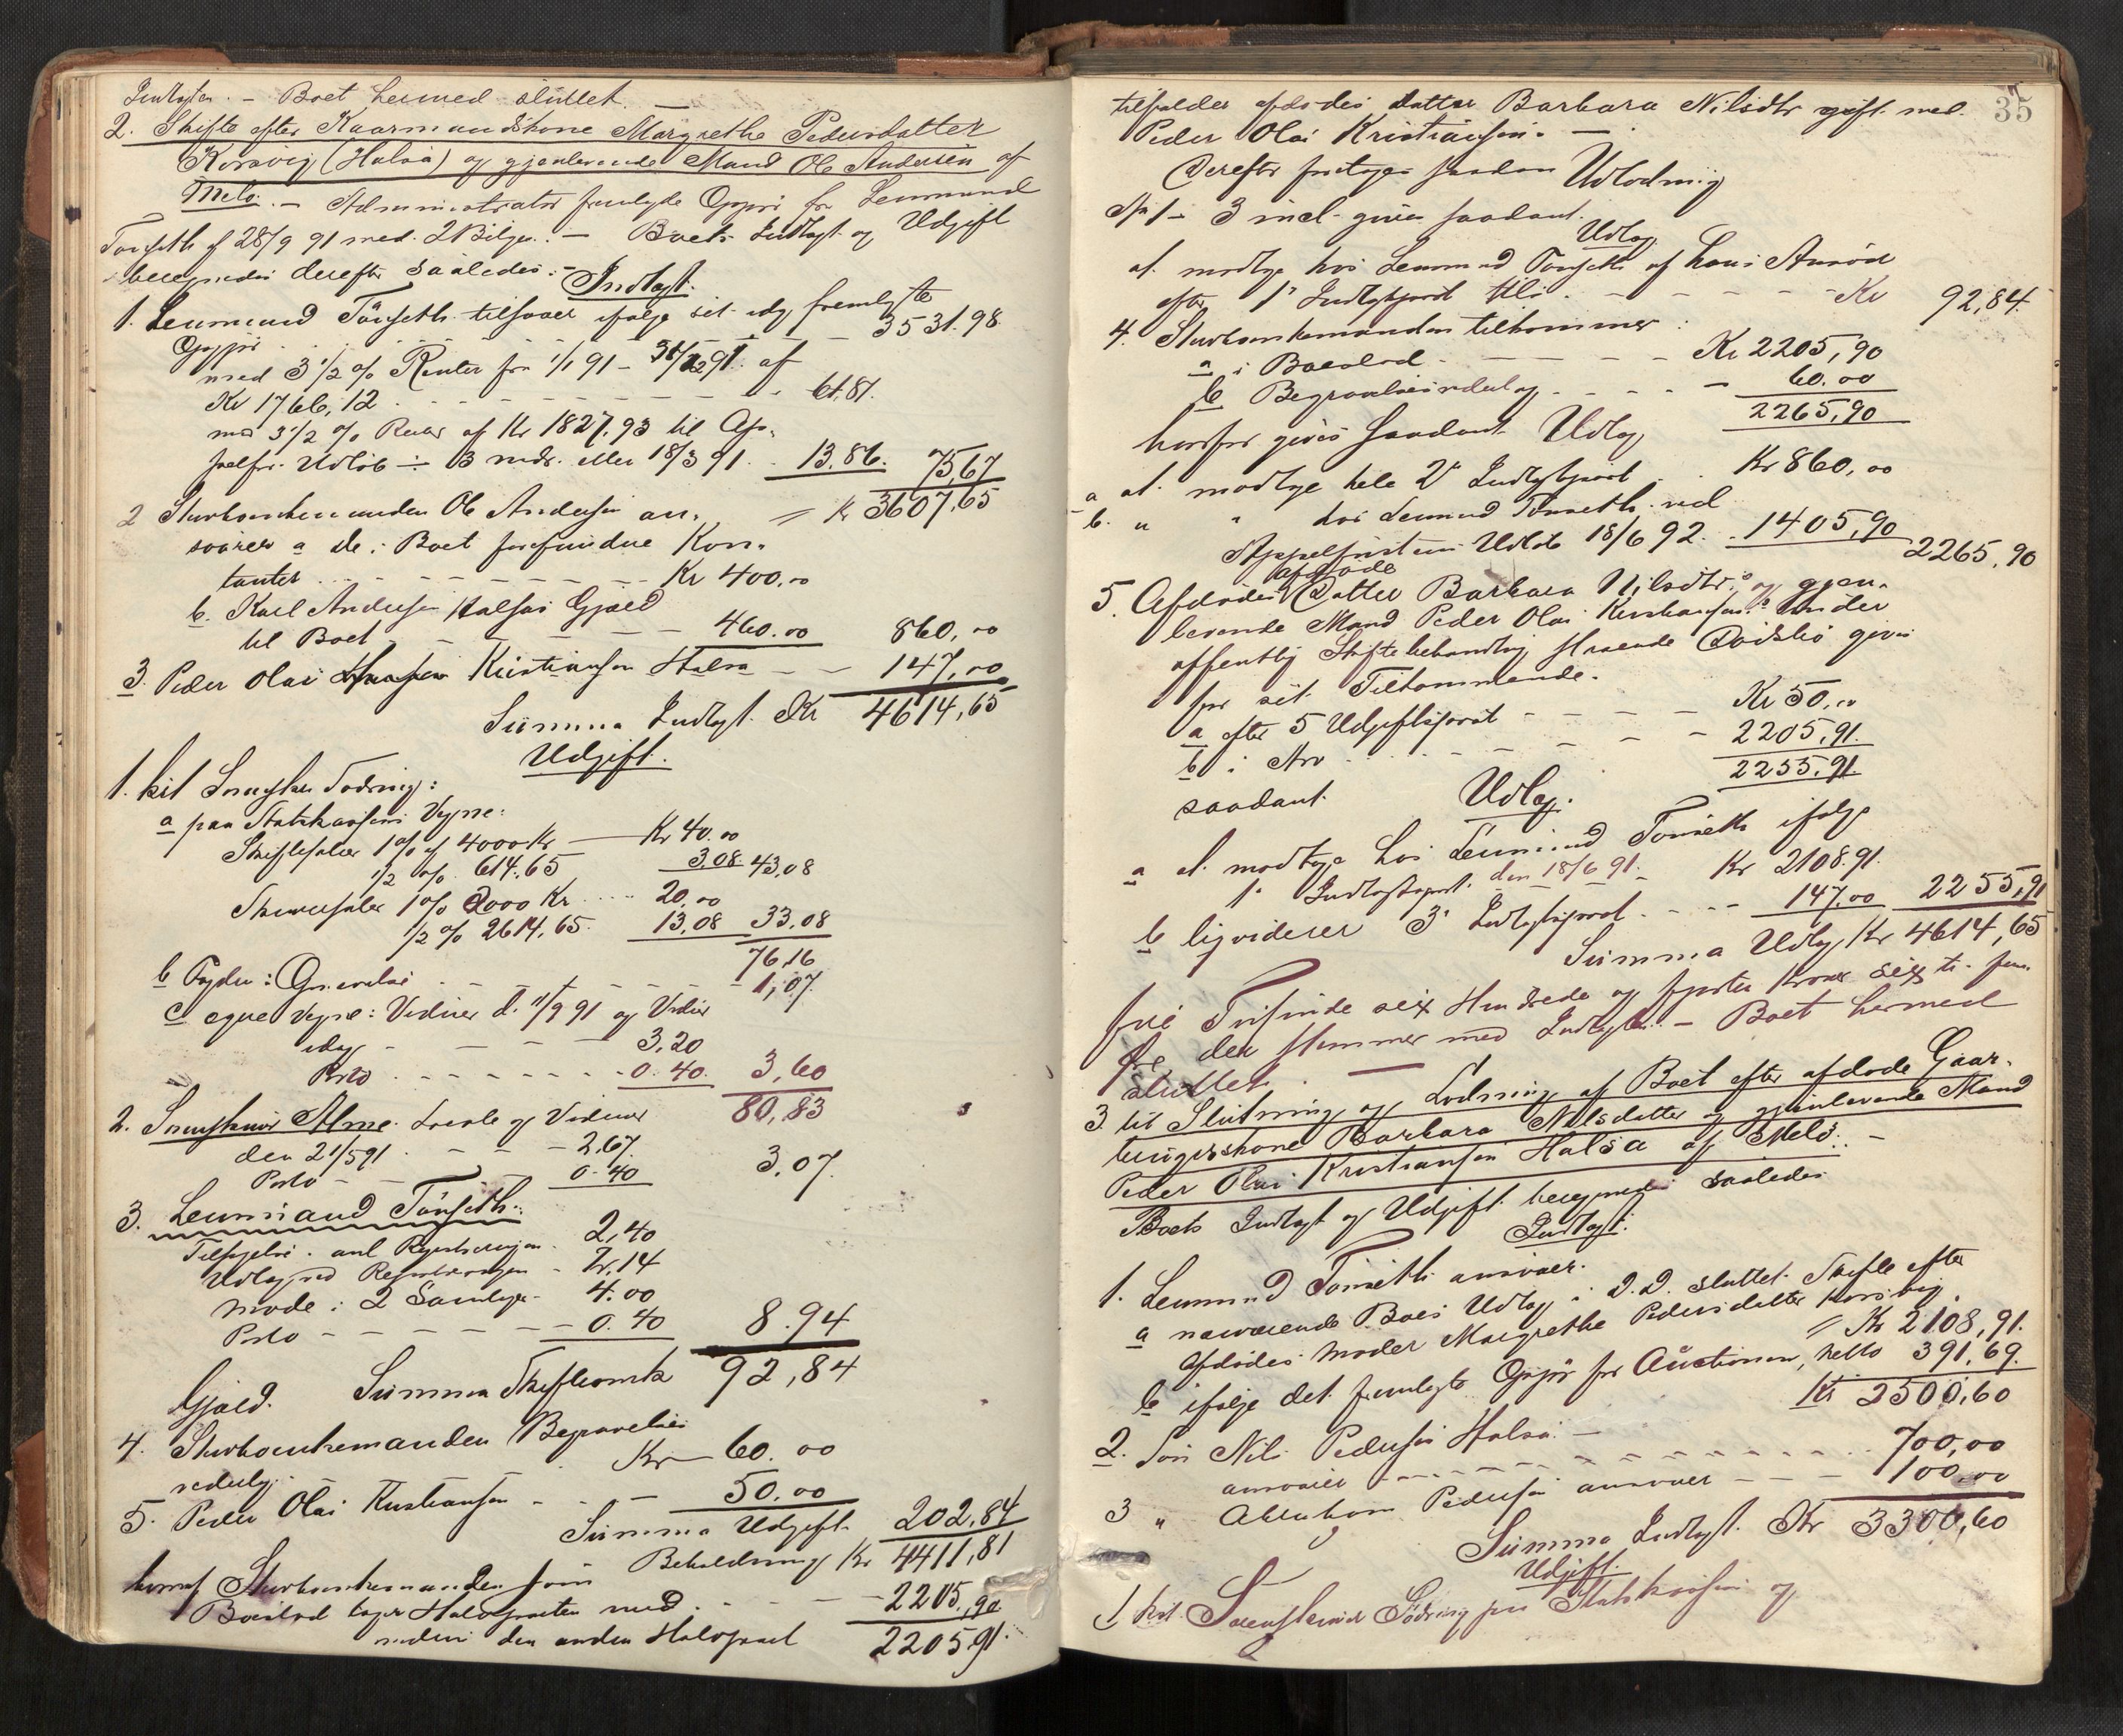 Indtægten. – Boet hermed sluttet. –
2. Skifte efter Kaarmandskone Margrethe Pedersdatter
Korsvig (Halsa) og gjenlevende Mand Ole Andersen af
Melø. – Administrator fremlagde Opgjør fra Lensmand
Tønseth af 28/9 91 med 2 Bilage. – Boets Indtægt og Udgift
beregnedes derefter saaledes: –
Indtægt.
1. Lensmand Tönseth tilsvarer ifølge sit idag fremlagte
Opgjør 3531.98
med 3 1/2 % Renter fra 1/1 91 – 31/12 91 af
Kr 1766,12 61.81.
med 3 1/2 % Renter af Kr 1827,93 til Ap-
pelfr. Udløb ÷ 3 mdr. eller 18/3 91 13.86. 75,67
Kr 3607,65
2 Sterbomkemanden Ole Andersen an-
svarer a de i Boet forefundne Kon-
tanter Kr 400,00
b. Karl Andersen Halsas Gjæld
til Boet 460.00 860,00
3. Peder Olai Kristiansen Halsa – – 147,00
Summa Indtægt Kr 4614,65
Udgift.
1. hit Sorenskr Fodring:
a paa Statskassens Vegne:
Skiftesaler 1 % af 4000 Kr – Kr 40.00
1/2 % 614.65 3.08 43,08
Skriversaler 1 % 2000 Kr 20,00
1/2 % 2614,65. 13,08 33.08
76,16
b Fogden: 1,07
c egne Vegne: Vidner d. 11/9 91 og Vidner
idag – – 3,20
Porto 0.40. 3,60
80,83
2. Sorenskriver Alme. Locale og Vidner
den 21/5 91 – – 2,67.
Porto – – 0.40 3,07.
3. Lensmand Tönseth.
Tilsigelse anl Registreringen 2,40
Udlæg ved Registreringen – 2,14
Møde i 2 Samlinger – 4.00
Porto – – – 0.40 8.94
Summa Skifteomk 92,84
Gjæld.
4. Sterbomkemanden Begravelses
udlæg Kr 60.00
5. Peder Olai Kristiansen – – 50.00
Summa Udgift 202,84
Beholdning Kr 4411,81
hvoraf Sterbomkemanden som
Boeslod tager Halvparten med – 2205,90
medens den anden Halvpart 220591.
35
tilfalder afdødes datter Barbara Nilsdtr gift med
Peder Olai Kristiansen. –
Derefter foretages saadan Udlodning
No 1 – 3 incl. gives saadant
Udlæg
at modtage hos Lensmand Tönseth af hans Ansvar
efter 1ste Indtægtspost – – – – Kr 92,84.
4. Sterbomkemanden tilkommer:
a i Boeslod – – – – Kr 2205,90
b Begravelsesudlæg – – – – 60.00
2265,90
hvorfor gives saadant Udlæg
a at modtage hele 2. Indtægtspost Kr 860,00
b. " " hos Lensmand Tönseth ved
Appelfristens Udløb 18/6 92. 1405,90 2265,90
5. Afdødes afdøde Datter Barbara Nilsdtrs og gjen-
levende Mand Peder Olai Kristiansens under
offentlig Skiftebehandling staaende Dødsbo gives
for sit Tilkommende.
a efter 5 Udgiftspost – – – – Kr 50,00
b i Arv – – – – 2205,91.
2255,91
saadant Udlæg.
a at modtage hos Lensmand Tönseth ifølge
1. Indtægtspost. den 18/6 91. Kr 2108.91.
b ligviderer 3. Indtægtspost 147.00 2255,91
Summa Udlæg Kr 4614,65
fire Tusinde sex Hundrede og fjorten Kroner sexti fem
Øre, der stemmer med Indtægten. – Boet hermed
sluttet. –
3. til Slutning og Lodning af Boet efter afdøde Gaar-
brugerskone Barbara Nilsdatter og gjenlevende Mand
Peder Olai Kristiansen Halsa af Melø. –
Boets Indtægt og Udgift beregnedes saaledes
Indtægt.
1. Lensmand Tönseth ansvarer.
a nærværende Boes Udlæg i D.D. sluttet Skifte efter
afdødes Moder Margrethe Pedersdatter Korsvig Kr 2108,91.
b ifølge det fremlagte Opgjør for Auctionen, netto 391,69.
Kr 2500,60
2. Søn Nils Pedersen Halsa –
ansvarer – – – 700,00
3 " Abraham Pedersen ansvarer – – – 100,00
Summa Indtægt. Kr 3300,60
Udgift.
1 hit Sorenskriver Fodring paa Statskassens og